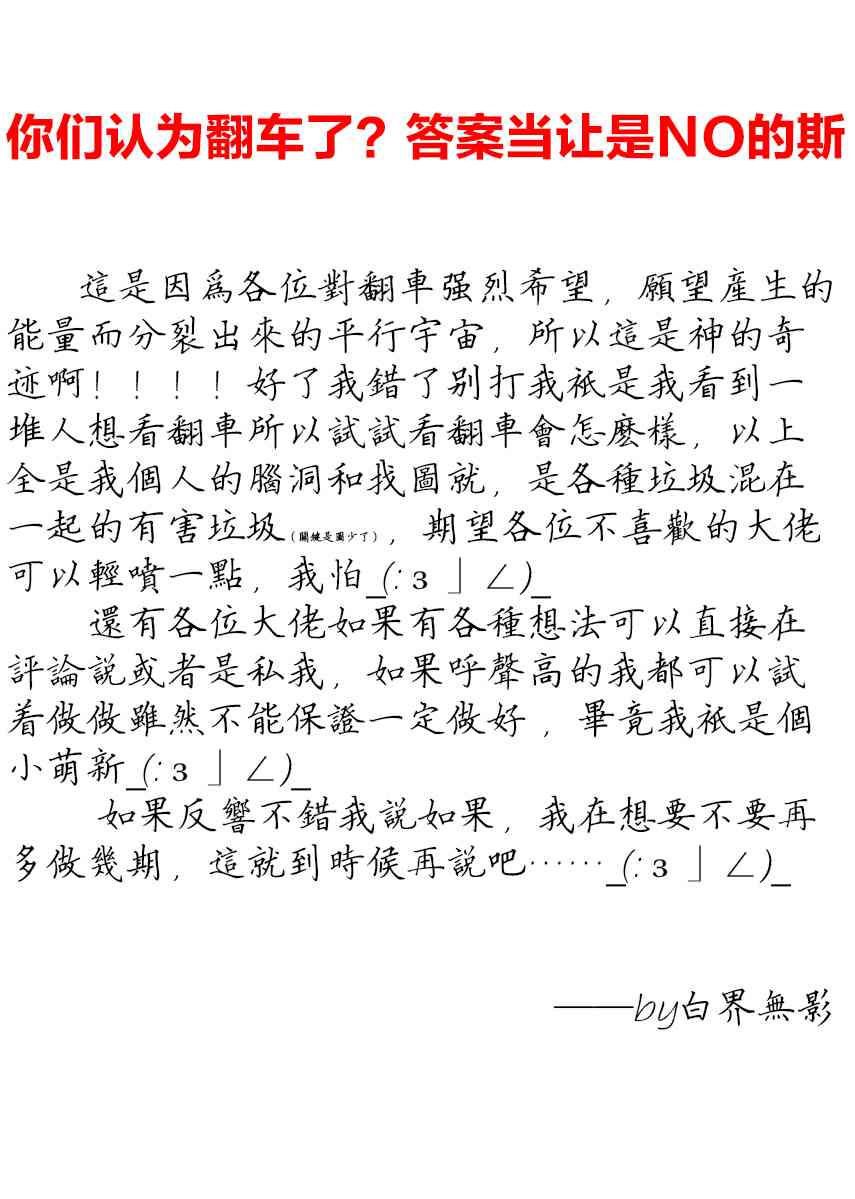 你们认为翻车了？答案当让是NO的斯
這是因爲各位對翻車强烈希望，願望産生的
能量而分裂出來的平行宇宙，所以這是神的奇
迹啊！！！！好了我錯了别打我衹是我看到一
堆人想看翻車所以試試看翻車會怎麽樣，以上
全是我個人的腦洞和找圖就，是各種垃圾混在
一起的有害垃圾（關鍵是圖少了），期望各位不喜歡的大佬
可以輕噴一點，我怕_(:з」∠)_
還有各位大佬如果有各種想法可以直接在
評論説或者是私我，如果呼聲高的我都可以試
着做做雖然不能保證一定做好，畢竟我衹是個
小萌新_(:з」∠)_
如果反響不錯我説如果，我在想要不要再
多做幾期，這就到時候再説吧……_(:з」∠)_
——by白界無影